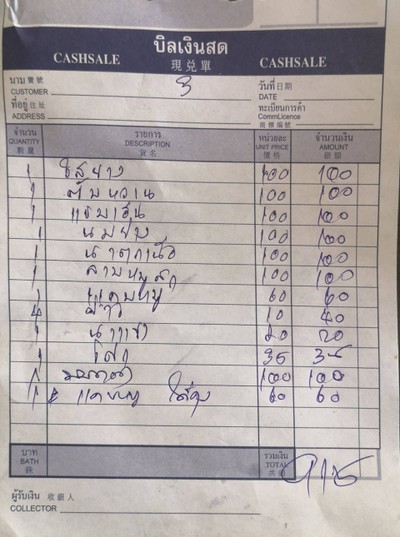 บิลเงินสด
CASHSALE 現兌單 CASHSALE
นาม 寶號
CUSTOMER 3
วันที่ 日期
DATE
ที่อยู่ 住址
ADDRESS
ทะเบียนการค้า
CommLicence
商標編號
จำนวน รายการ หน่วยละ จำนวนเงิน
QUANTITY DESCRIPTION UNIT PRICE AMOUNT
數量 貨名 價格 銀額
1 100 100
1 ตับหวาน 100 100
1 100 100
1 100 100
1 น้ำตกเนื้อ 100 100
1 ลาบหมูสุก 100 100
1 แคบหมู 60 60
4 ข้าว 10 40
1 20 20
1 35 35
1 100 100
1 แคบหมู 60 60
บาท รวมเงิน
BATH TOTAL 915
銖 共銀
ผู้รับเงิน 收銀人
COLLECTOR